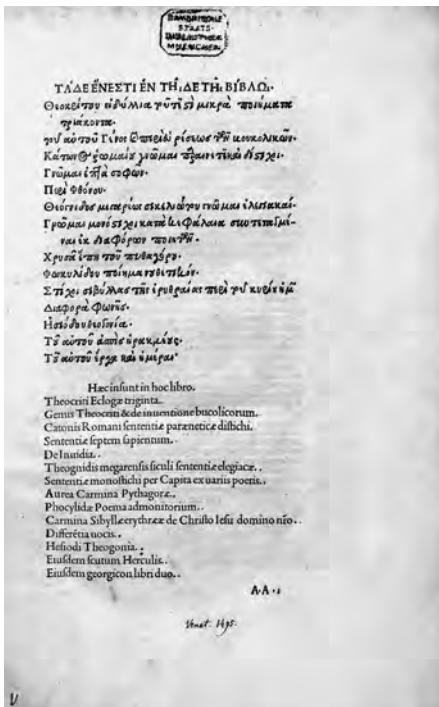 BAYERISCHE
STAATS-
BIBLIOTHEK
MUENCHEN
ΤΆΔΕ ἜΝΕΣΤΙ ἘΝ ΤΗ͂ΔΕ ΤΗ͂ ΒΊΒΛΩ·
Θεοκρίτου εἰδύλλια μικρὰ ποιήματα
τριάκοντα·
Γνῶμαι ἑπτὰ σοφῶν·
Περὶ Φθόνου·
Θεόγνιδος μεγαρέως σικελιώτου γνῶμαι ἐλεγιακαί·
Γνῶμαι μονόστιχοι κατὰ κεφάλαια
ναι ἐκ διαφόρων ποιητῶν·
Χρυσᾶ ἔπη τοῦ πυθαγόρου·
Φωκυλίδου ποίημα νουθετικόν·
Στίχοι σιβύλλας τῆς ἐρυθραίας περὶ τοῦ κυρίου ἡμῶν
Διαφορὰ Φωνῆς·
Ἡσιόδου θεογονία·
Τοῦ αὐτοῦ ἀσπὶς ἡρακλέους·
Τοῦ αὐτοῦ ἔργα καὶ ἡμέραι·
Hæc insunt in hoc libro.
Theocriti Eclogæ triginta.
Genus Theocriti & de inuentione bucolicorum.
Catonis Romani sententiæ parænetiçæ distichi.
Sententiæ septem sapientum.
De Inuidia.
Theognidis megarensis siculi sententiæ elegiacæ.
Sententiæ monostichi per Capita ex uariis poetis.
Aurea Carmina Pythagoræ.
Phocylidæ Poema admonitorium.
Carmina Sibyllæ erythrææ de Christo Iesu domino nr̃o.
Differẽtia uocis.
Hesiodi Theogonia.
Eiusdem scutum Herculis.
Eiusdem georgicon libri duo.
Venet. 1495.